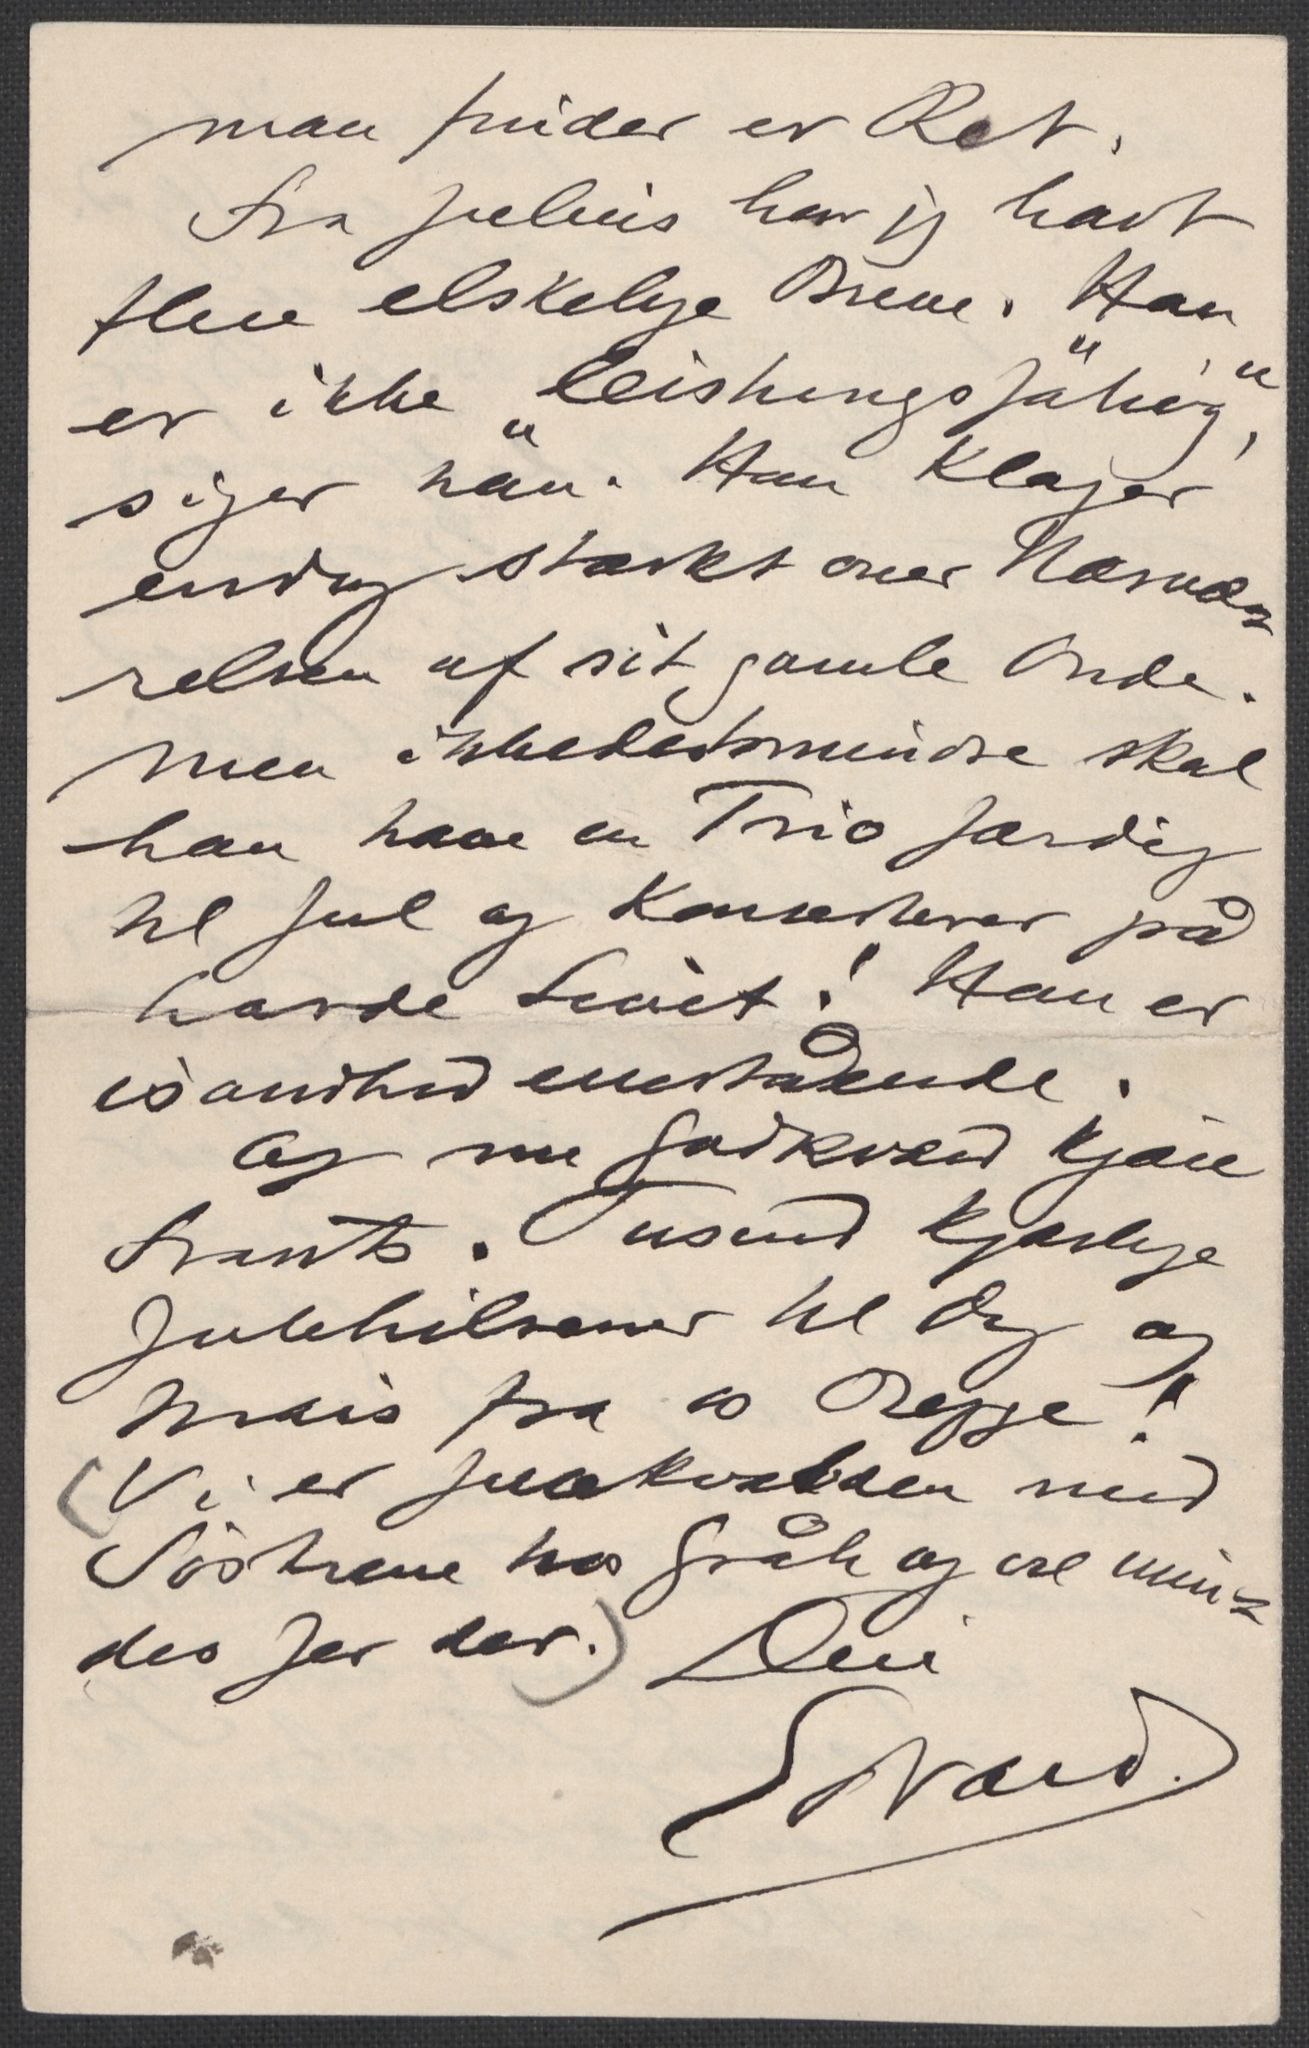 man finder er Ret.
Fra Julius har jeg havt
flere elskelige Breve. Han
er ikke „leistungsfähig",
siger han. Han klager
endog stærkt over Nærvæ-
relsen af sit gamle Onde.
Men ikkedestomindre skal
han have en Trio færdig
til Jul og Konserterer på
harde Livet! Han er
isandhed enestående.
Og nu godkvæld kjære
Frants. Tusend kjærlige
Julehilsener til dig og
Marie fra os Begge!
(Vi er Julekvælden med
Söstrene hos Gråh og vil min-
des Jer der.) Din
Edvard.